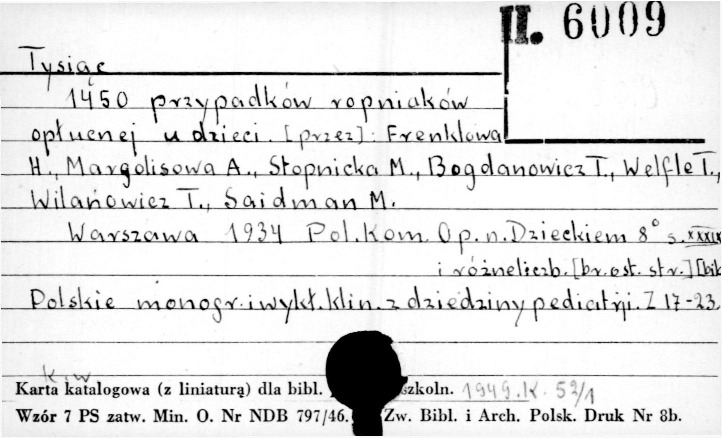 II. 6009
Tysiąc
1450 przypadków ropniaków
opłucnej u dzieci. [przez]: Frenklowa
H., Margolisowa A., Stopnicka M., Bogdanowicz T., Welfle T.,
Wilanowicz T., Saidman M.
Warszawa 1934 Pol. Kom. Op. n. Dzieckiem 8° s. XXXIX
i różneliczb. [br. ost. str.] [bik
Polskie monogr. i wykł. klin. z dziedziny pediatrji. Z 17-23.
K. w
Karta katalogowa (z liniaturą) dla bibl. szkoln. 1949. K. 59/1
Wzór 7 PS zatw. Min. O. Nr NDB 797/46. Zw. Bibl. i Arch. Polsk. Druk Nr 8b.